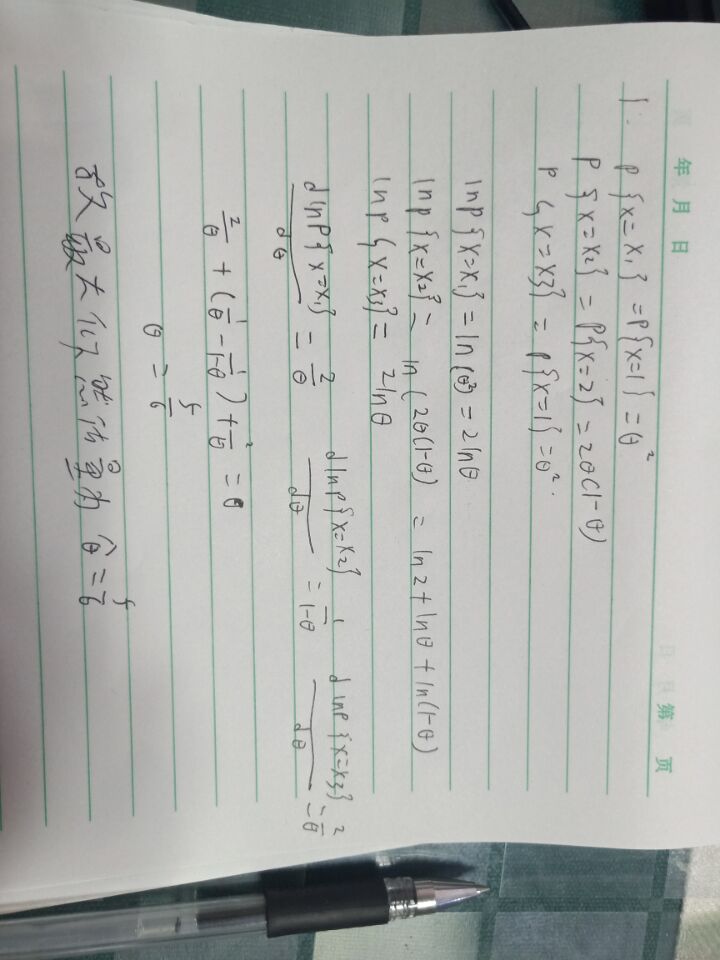 年 月 日 第 页
1. P{X=X₁}=P{X=1}=θ²
P{X=X₂}=P{X=2}=2θ(1-θ)
P{X=X3}=P{X=1}=θ².
lnP{X=X₁}=ln(θ²)=2lnθ
lnP{X=X₂}=ln(2θ(1-θ)=ln2+lnθ+ln(1-θ)
lnP{X=X₃}=2lnθ
dlnP{X=X₁}/dθ=2/θ dlnP{X=X₂}/dθ=1/1-θ dlnP{X=X₃}/dθ=2/θ
2/θ+(1/θ-1/1-θ)+2/θ=0
θ=5/6
故最大似然估计量为 θ̂=5/6